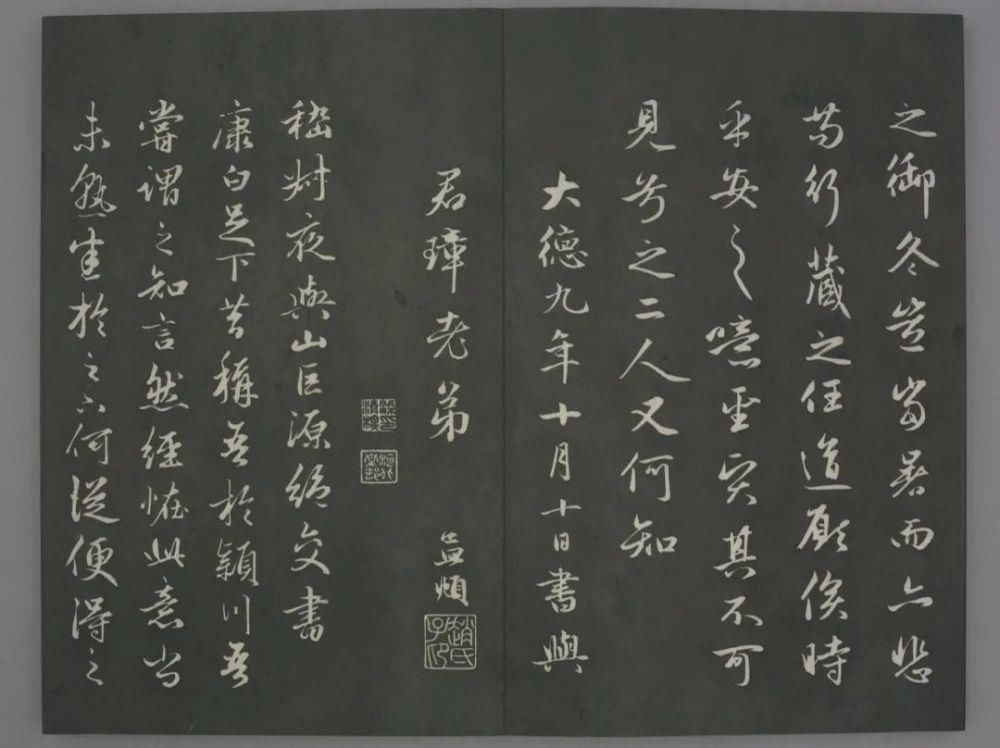 之御冬豈當暑而亦悲
苟行藏之任道顧俟時
乎安之噫聖賢其不可
見兮之二人又何知
大德九年十月十日書與
君璋老弟
孟頫
趙氏子昂
嵇叔夜與山巨源絕交書
康白足下昔稱吾於穎川吾
嘗謂之知言然經怪此意尚
未熟悉於足下何從便得之